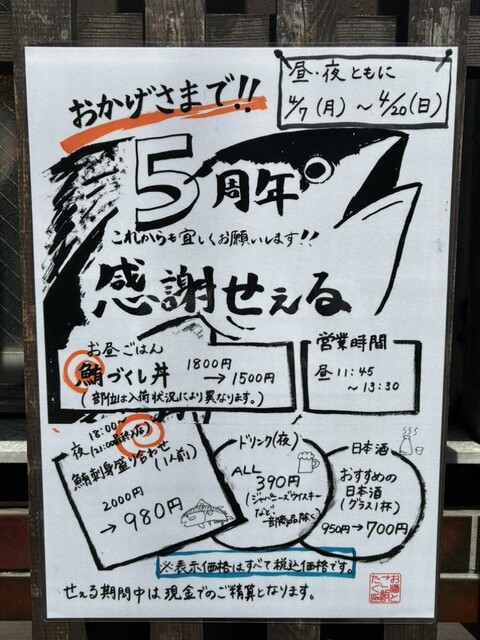 おかげさまで!!
昼・夜ともに
4/7(月)〜4/20(日)
5周年
これからも宜しくお願いします!!
感謝せぇる
お昼ごはん
鮪づくし丼
1800円
→1500円
(部位は入荷状況により異なります。)
営業時間
昼11:45
〜13:30
夜
18:00〜
(21:00最終入店)
鮪刺身盛り合わせ
(1人前)
2000円
→980円
ドリンク(夜)
ALL
390円
(ジャパニーズウイスキー
など、
一部商品除く)
日本酒
おすすめの
日本酒
(グラス1杯)
950円→700円
※表示価格はすべて税込価格です。
せぇる期間中は現金でのご精算となります。